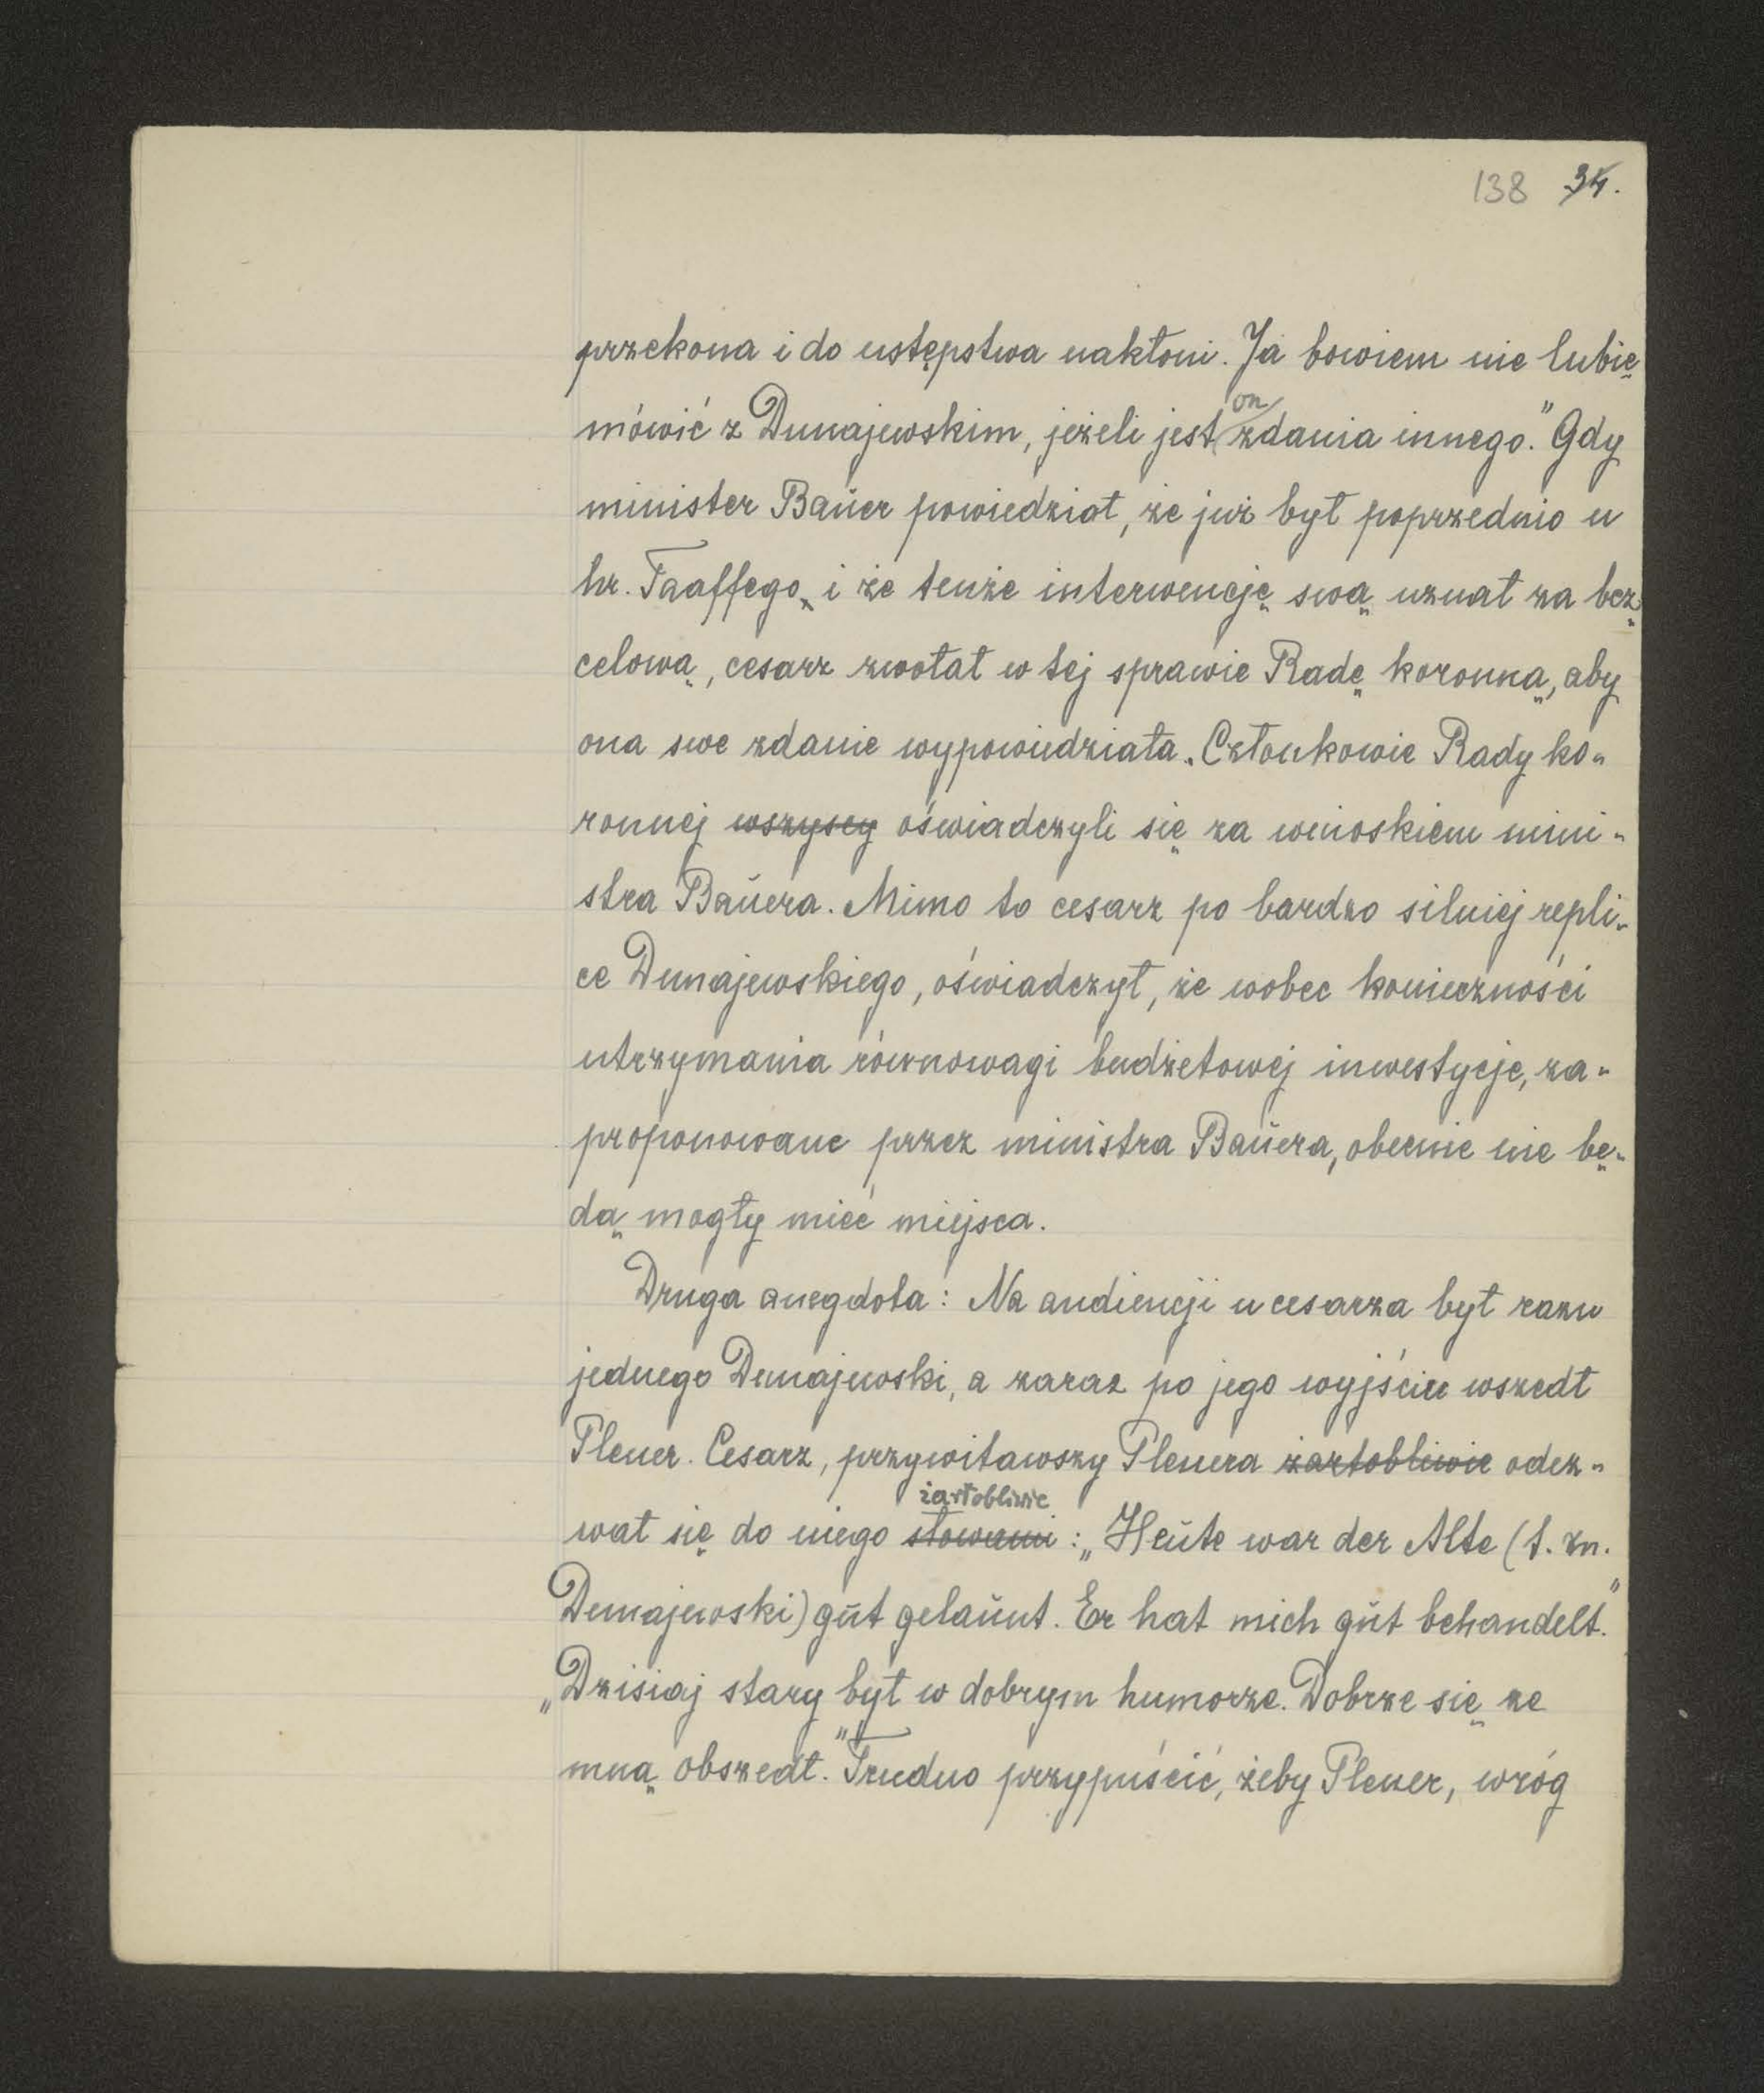 138 34.
przekona i do ustępstwa nakłoni. Ja bowiem nie lubię
mówić z Dunajewskim, jeżeli jest on zdania innego." Gdy
minister Baŭer powiedział, że już był poprzednio u
hr. Taaffego, i że tenże interwencję swą uznał za bez-
celową, cesarz zwołał w tej sprawie Radę koronną, aby
ona swe zdanie wypowiedziała. Członkowie Rady ko-
ronnej wszyscy oświadczyli się za wnioskiem mini-
stra Baŭera. Mimo to cesarz po bardzo silniej repli-
ce Dunajewskiego, oświadczył, że wobec konieczności
utrzymania równowagi budżetowej inwestycje, za-
proponowane przez ministra Baŭera, obecnie nie bę-
dą mogły mieć miejsca.
Druga anegdota: Na audiencji u cesarza był razu
jednego Dunajewski, a zaraz po jego wyjściu wszedł
Plener. Cesarz, przywitawszy Plenera żartobliwie odez-
żartobliwie
wał się do niego słowami: „Heŭte war der Alte (t. zn.
Dunajewski) gŭt gelaŭnt. Er hat mich gŭt behandelt."
„Dzisiaj stary był w dobrym humorze. Dobrze się ze
mną obszedł." Trudno przypuścić, żeby Plener, wróg